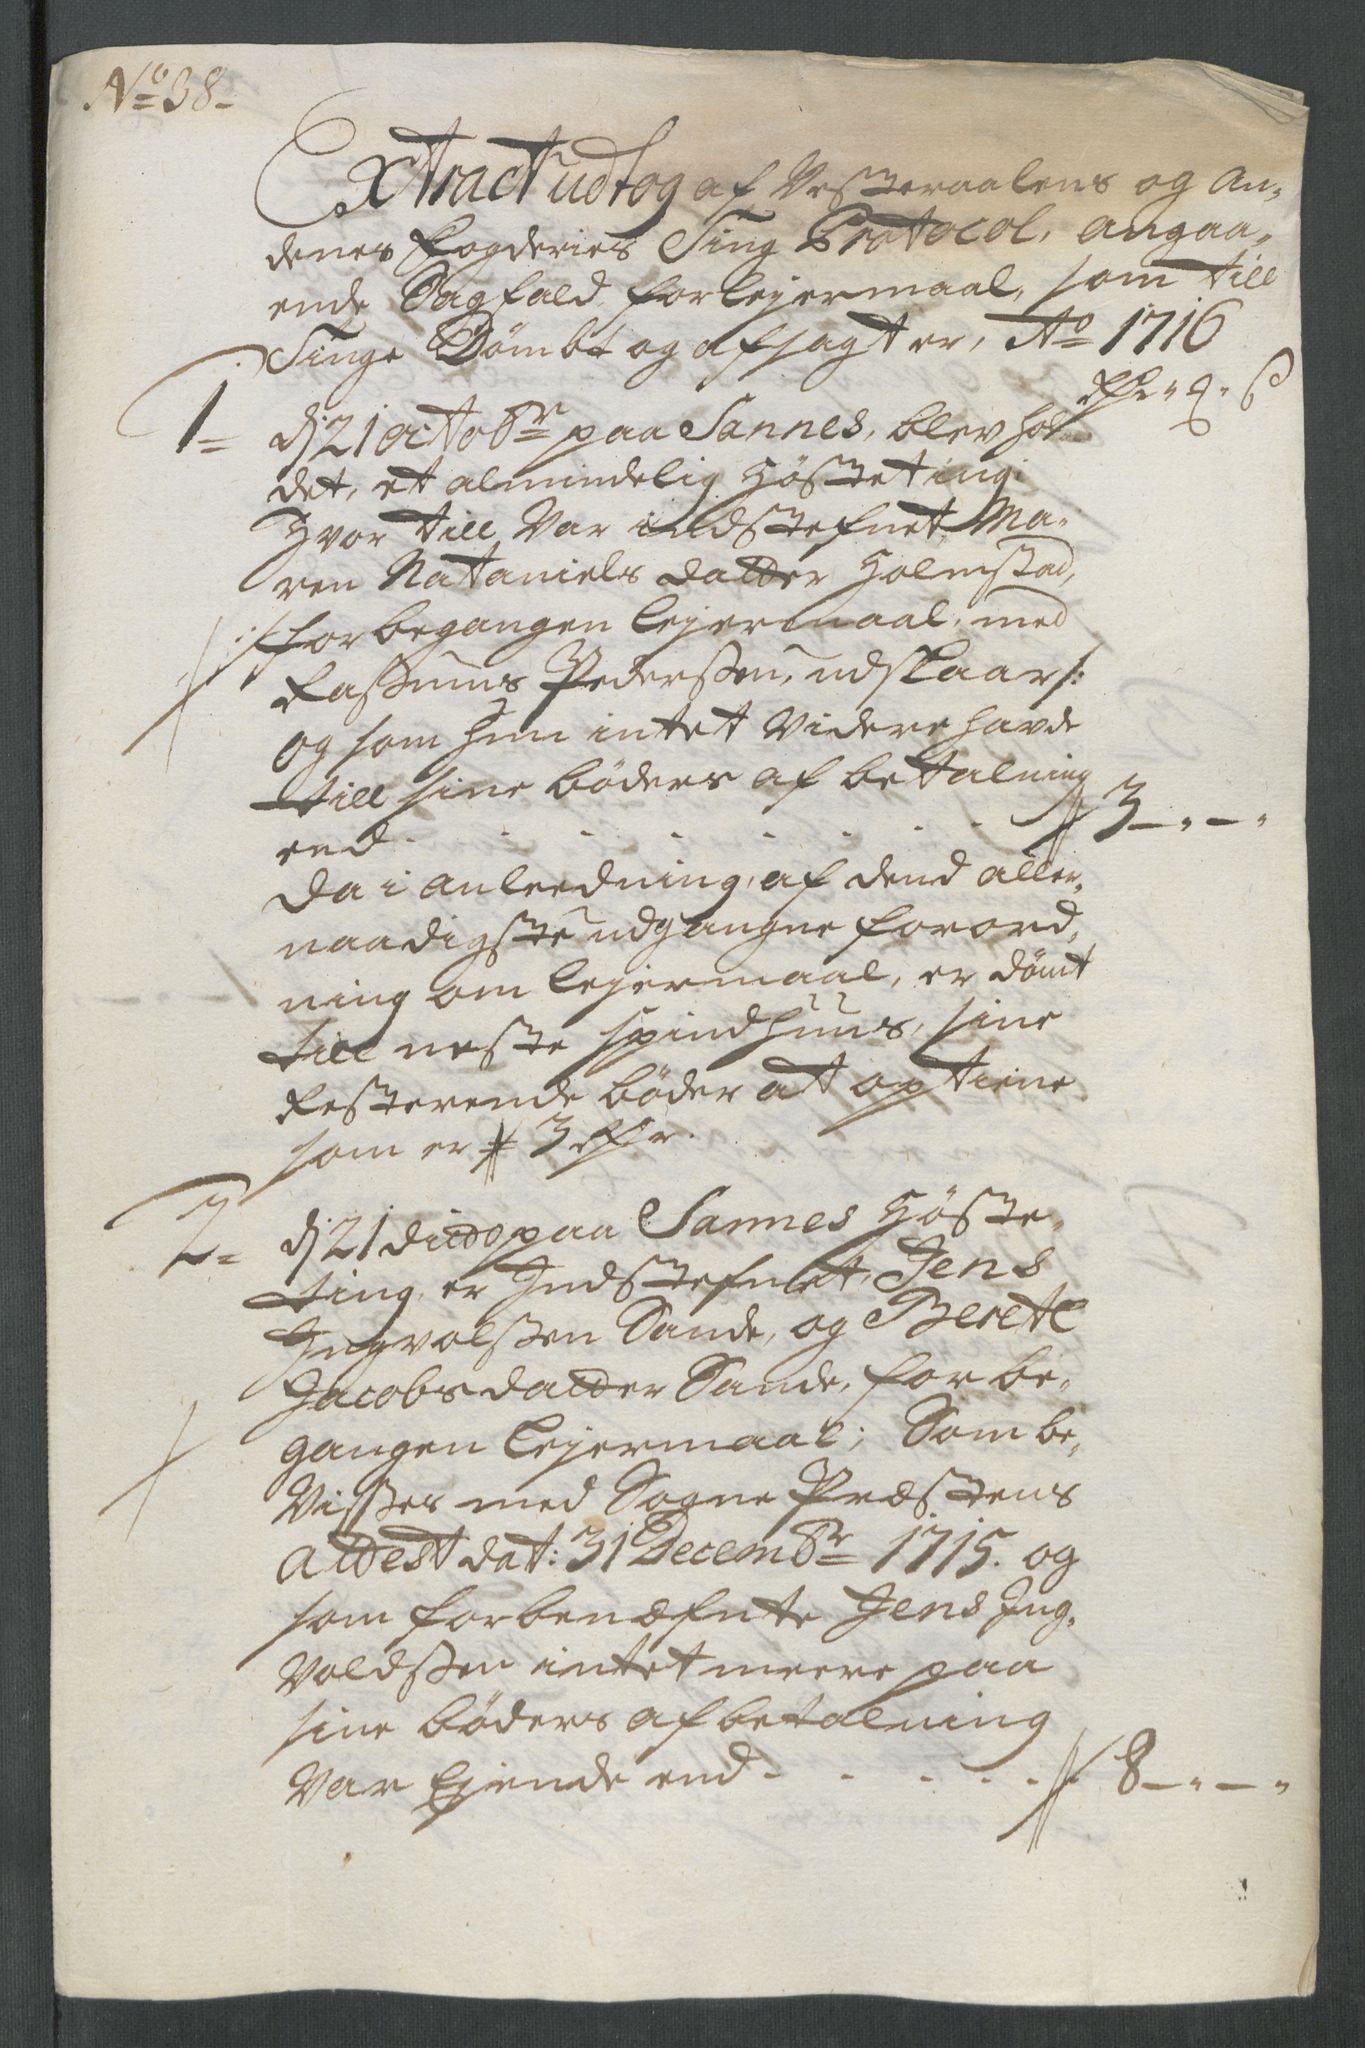 No 38.
Extract udtog af Vesteraalens og An-
denes fogderies Ting Protocol, angaa-
ende Sagfald for lejermaal, som till
Tinge Dömbt og afsagt er, Ao 1716
1 dj 21 octobr paa Sannes, blev hol-
det, et almindelig Hösteting
Hvor till Var indstefnet Ma-
ren Nataniels datter Holmstad,
/: for begangen lejermaal, med
Rasmus Pedersen, udslaar :/
og som hun intet Videre havde
till sine böders af betalning
end - - - - - - 3 - " - "
Da i anleedning af dend aller-
naadigste udgangne forord-
ning om lejermaal, er dömt
till neste spindhuus, sine
Resterende böder at optiene
som er 3 Rdr.
2 dj 21 dicto paa Sannes Höste-
ting er Indstefnet, Jens
Ingvolsen Sande, og Berete
Jacobsdatter Sande, for be-
gangen lejermaal; Som be-
Visses med Sogne Præstens
attest dat: 31 Decembr 1715. og
som forbenæfnte Jens Ing-
Voldsen intet meere paa
sine böders afbetalning
Var Ejende end - - - - 8 - " - "